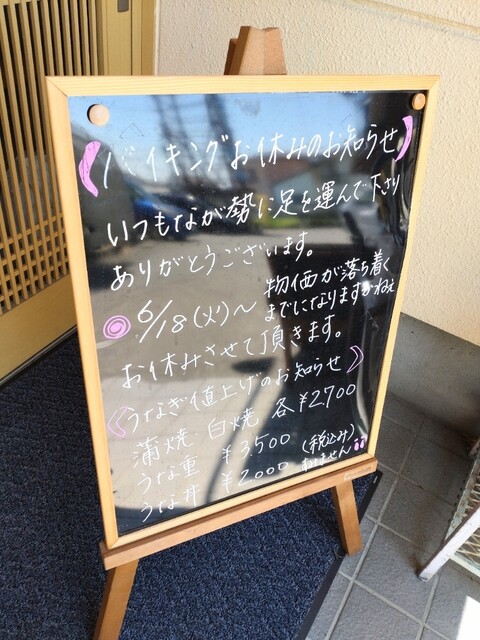 バイキングお休みのお知らせ
いつもながが勢に足を運んで下さり
ありがとうございます。
6/18(火)～ 物価が落ち着く
までになりますかねぇ
お休みさせて頂きます。
うなぎ値上げのお知らせ
蒲焼 白焼 各¥2,700
うな重 ¥3,500 (税込み)
うな丼 ¥2,000 すみません